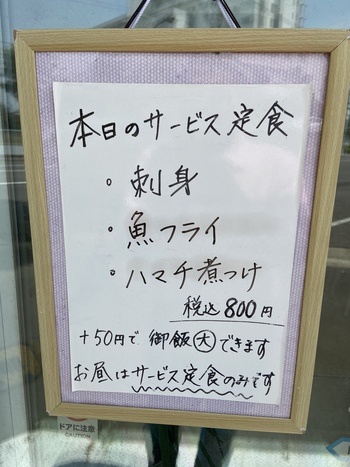 本日のサービス定食
・刺身
・魚フライ
・ハマチ煮つけ
税込800円
+50円で御飯大できます
お昼はサービス定食のみです
ドアに注意
CAUTION